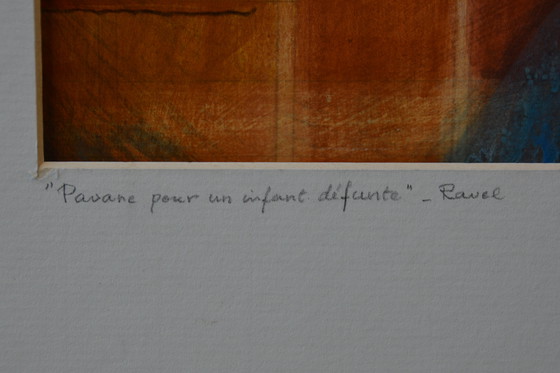 "Pavane pour un infant défunte" - Ravel